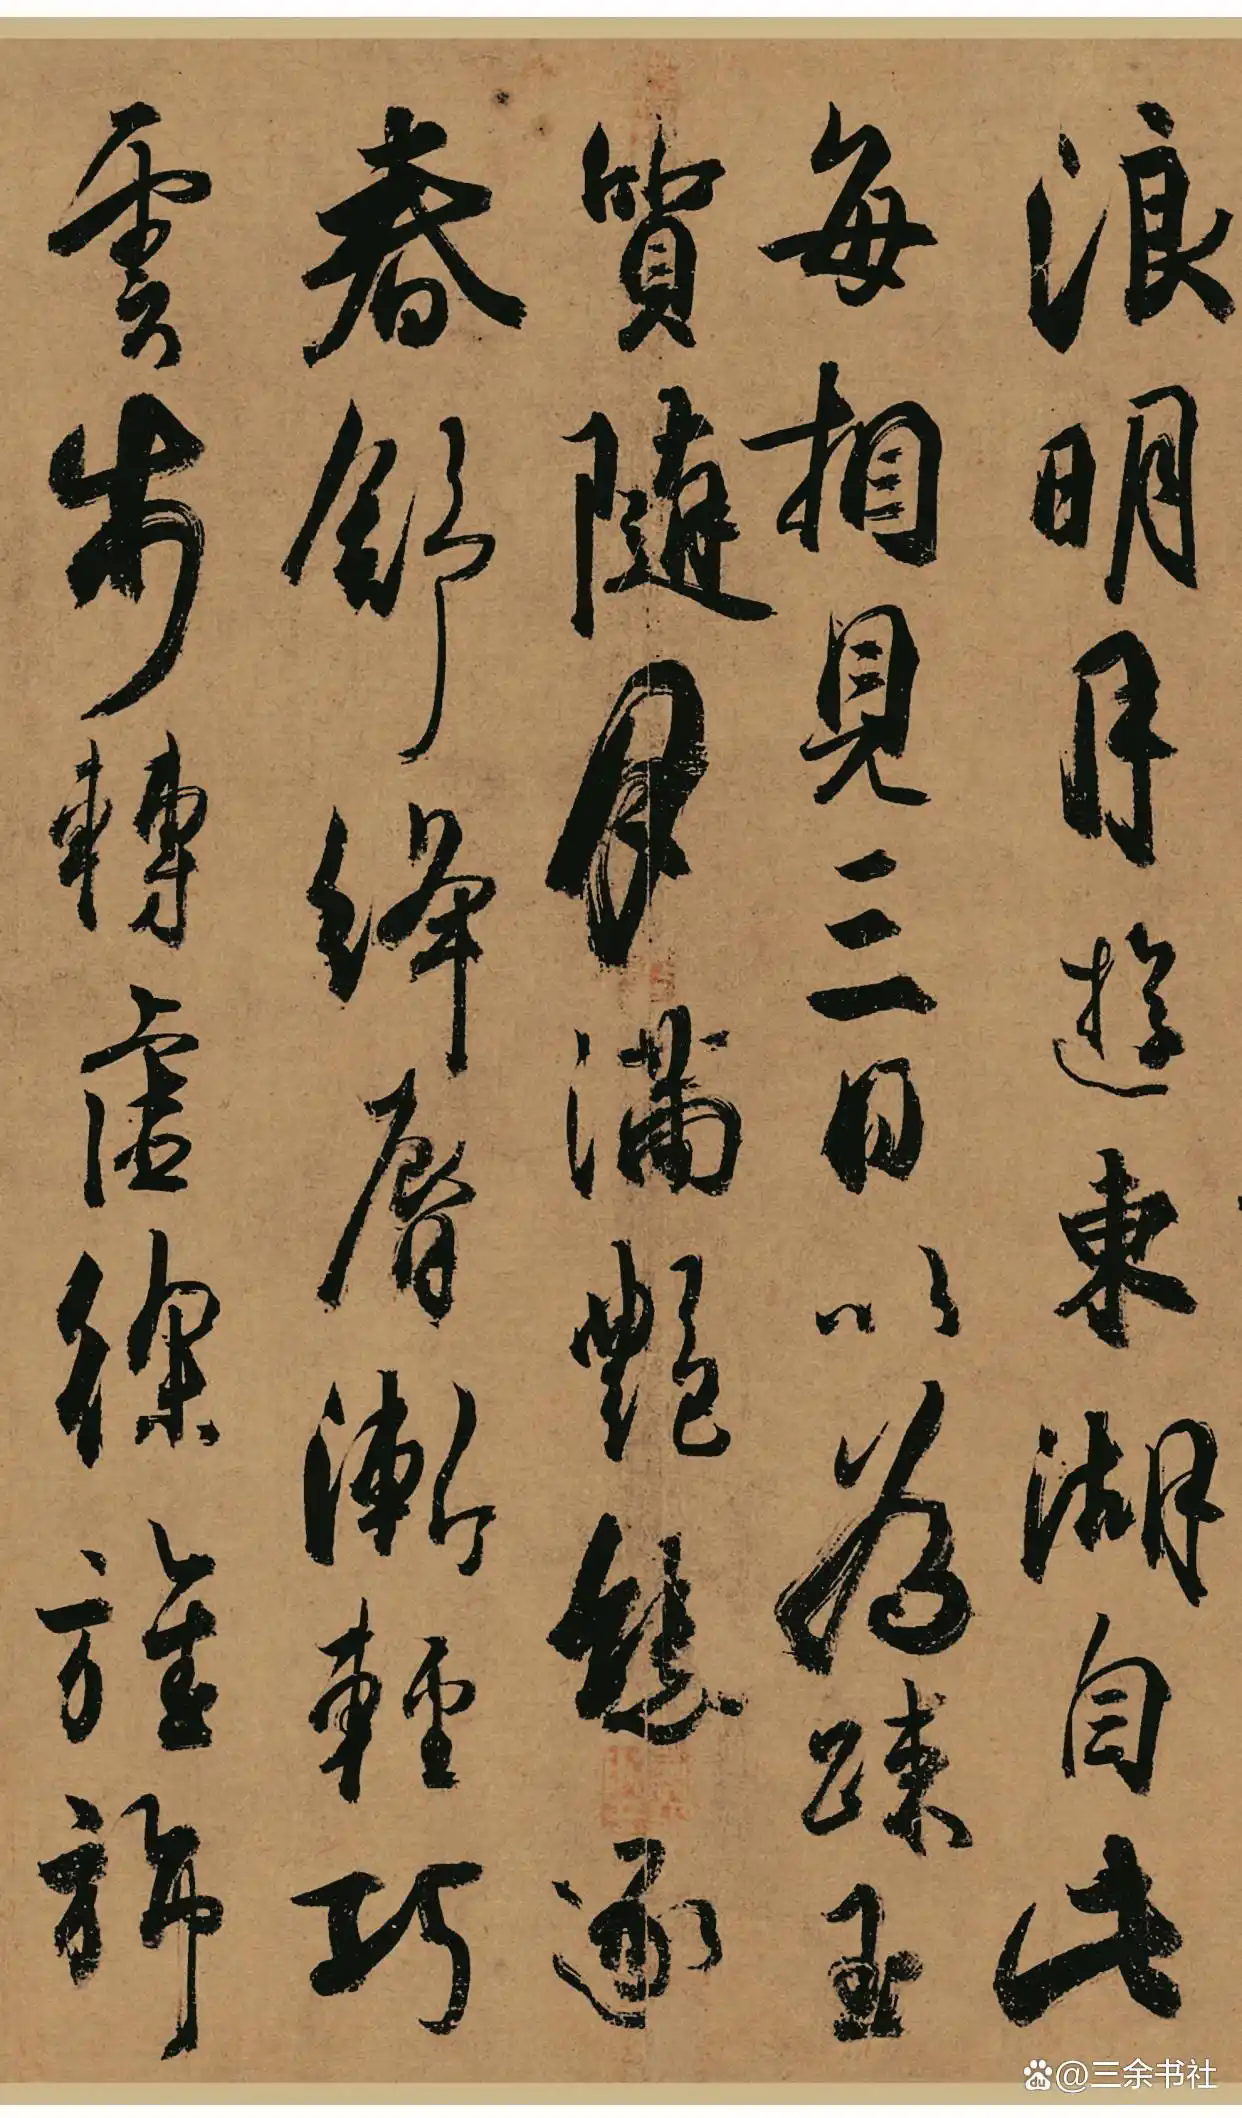 浪明月遊東湖自此
每相見三日以為疎玉
質隨月滿艷態逐
春舒絳脣漸輕巧
雲步轉虛徐旌旆
@三余书社